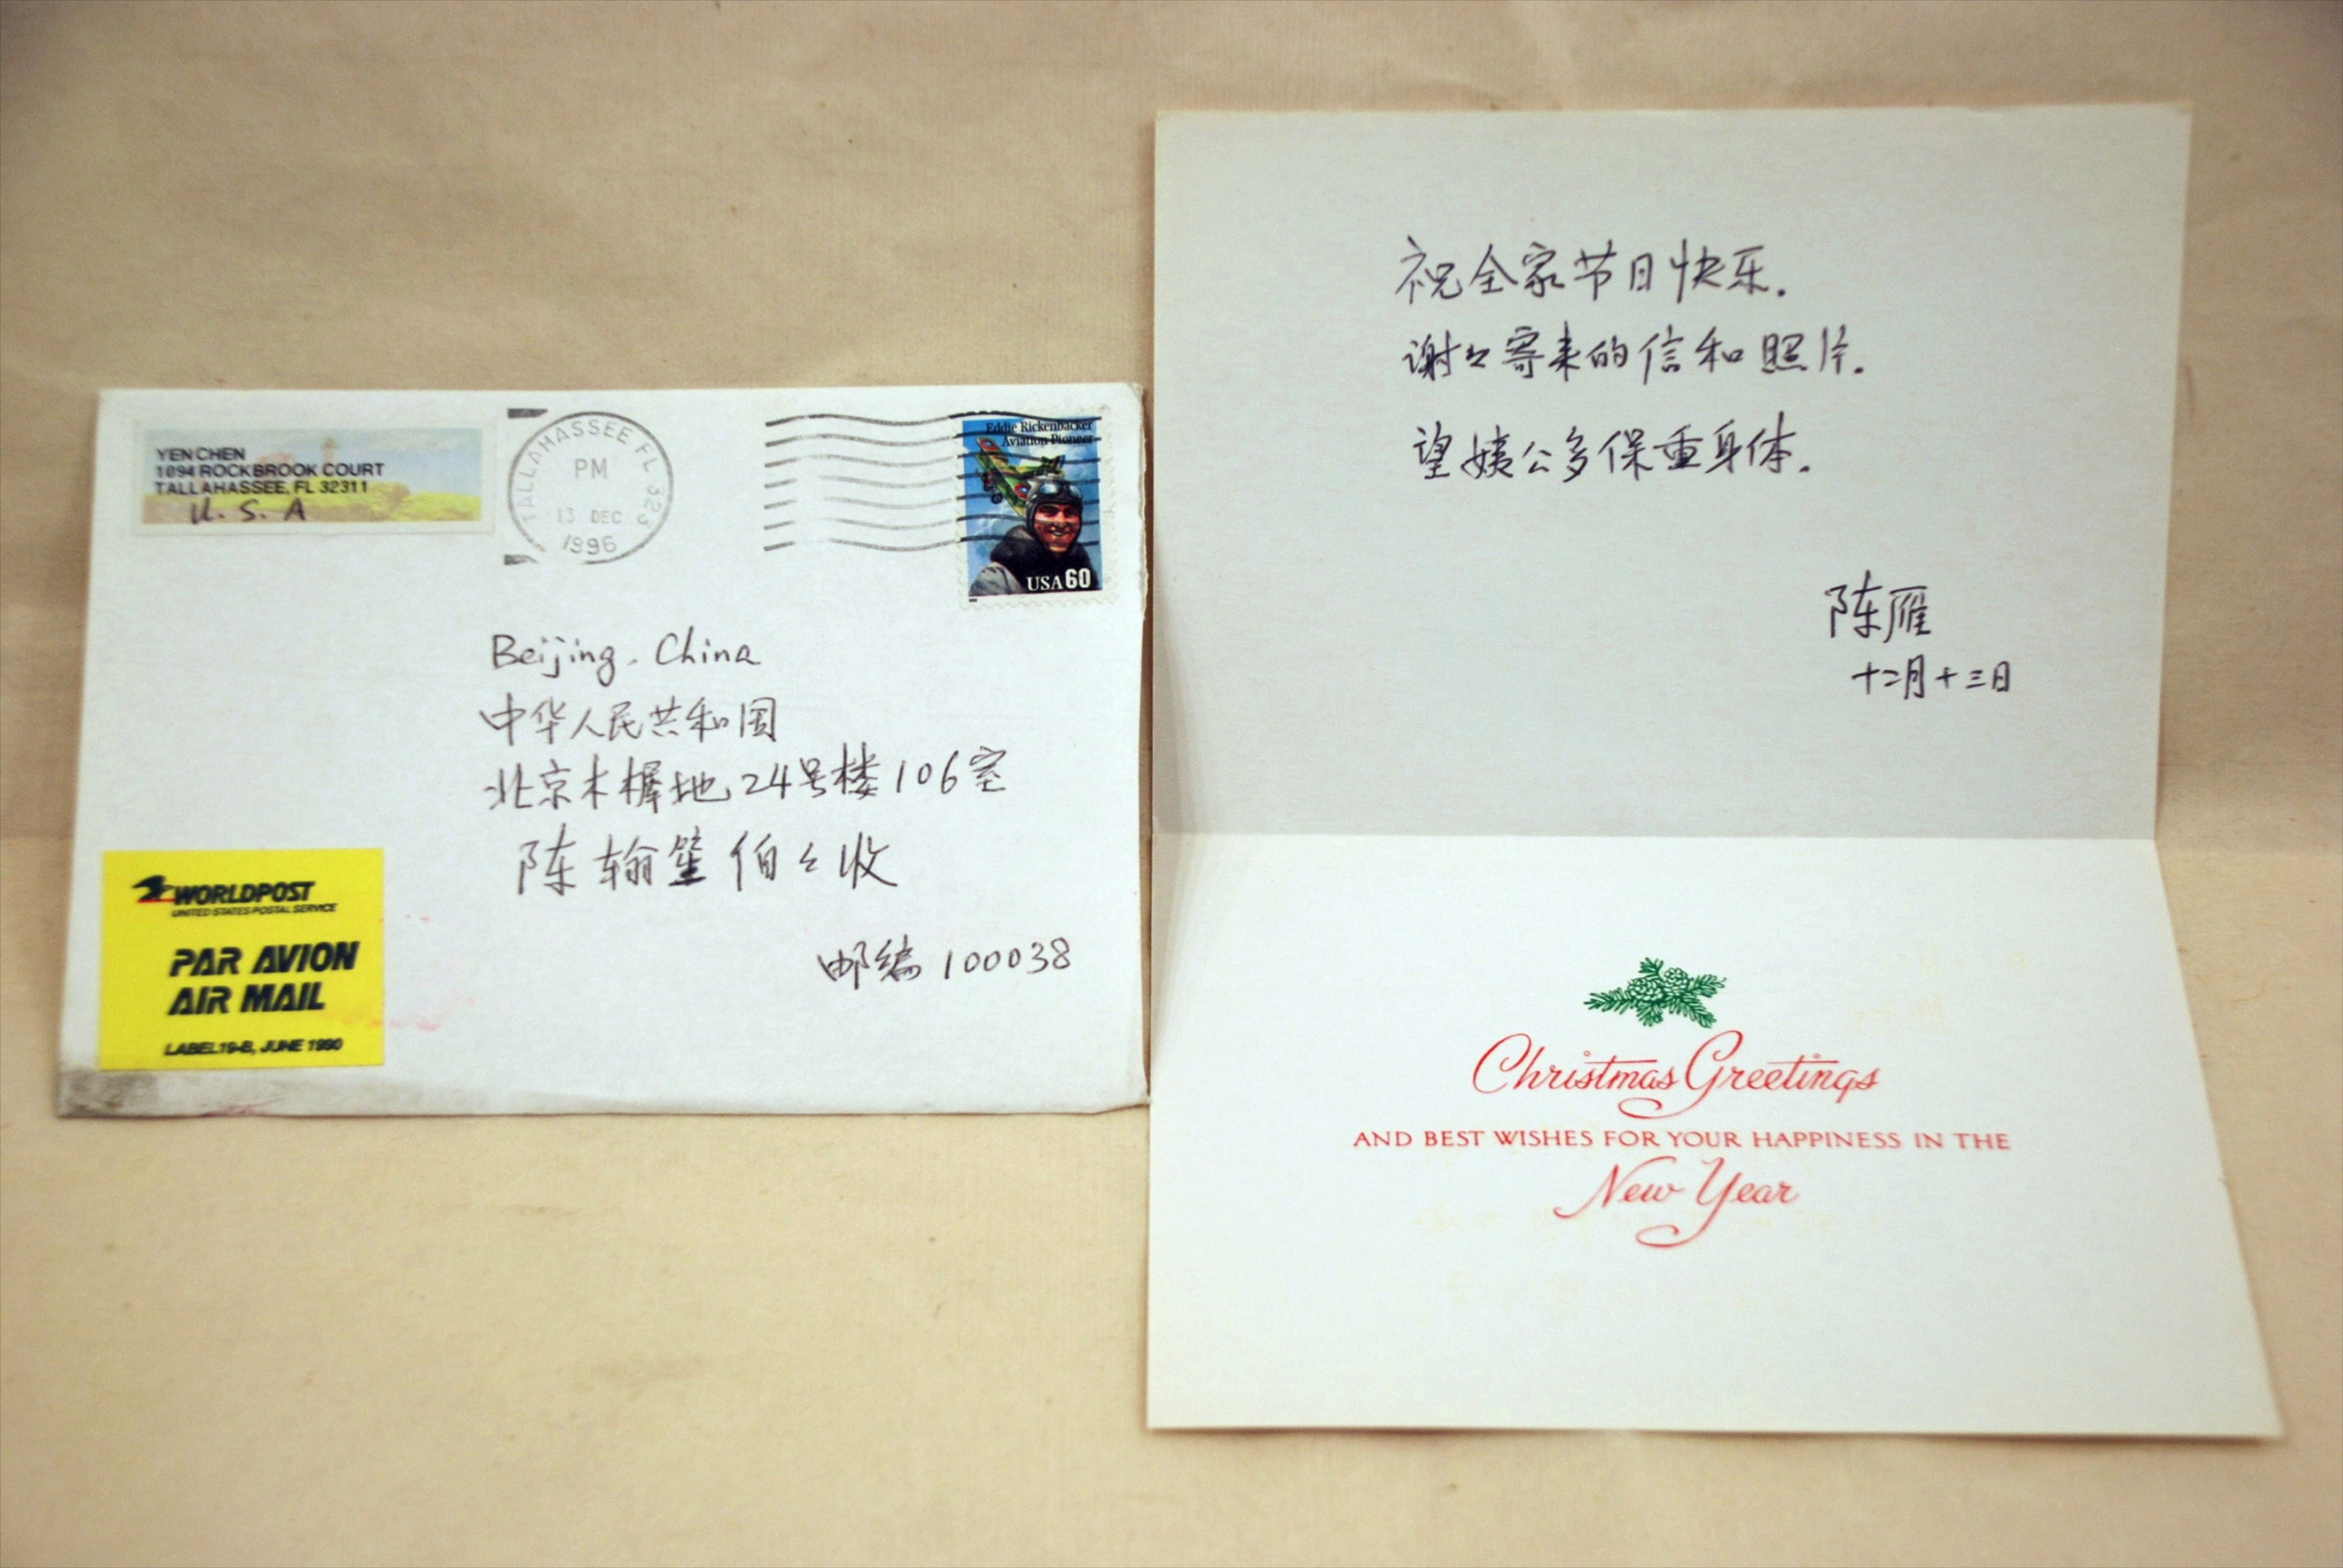 YEN CHEN
1094 ROCKBROOK COURT
TALLAHASSEE, FL 32311
U. S. A
TALLAHASSEE FL 323
PM
13 DEC
1996
Eddie Rickenbacker
Aviation Pioneer
USA 60
Beijing. China
中华人民共和国
北京木樨地24号楼106室
陈翰笙伯々收
邮编100038
WORLDPOST
UNITED STATES POSTAL SERVICE
PAR AVION
AIR MAIL
LABEL 19-B, JUNE 1990
祝全家节日快乐.
谢々寄来的信和照片.
望姨公多保重身体.
陈雁
十二月十三日
Christmas Greetings
AND BEST WISHES FOR YOUR HAPPINESS IN THE
New Year